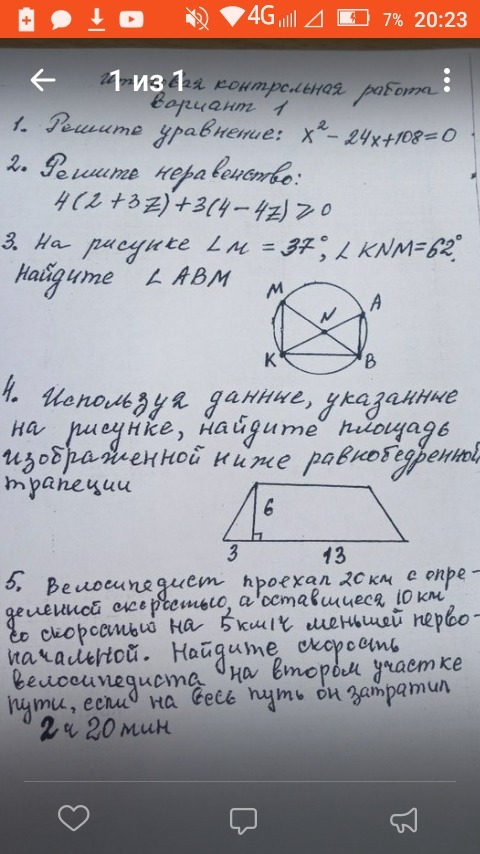 4G 7% 20:23
1 из 1
Итоговая контрольная работа
Вариант 1
1. Решите уравнение: x² - 24x+108=0
2. Решите неравенство:
4(2+3z)+3(4-4z)⩾0
3. На рисунке ∠M = 37°, ∠KNM=62°.
Найдите ∠ABM
M
A
N
K
B
4. Используя данные, указанные
на рисунке, найдите площадь
изображенной ниже равнобедренной
трапеции
6
3 13
5. Велосипедист проехал 20 км с опре-
деленной скоростью, а оставшиеся 10 км
со скоростью на 5 км/ч меньшей перво-
начальной. Найдите скорость
велосипедиста на втором участке
пути, если на весь путь он затратил
2 ч 20 мин